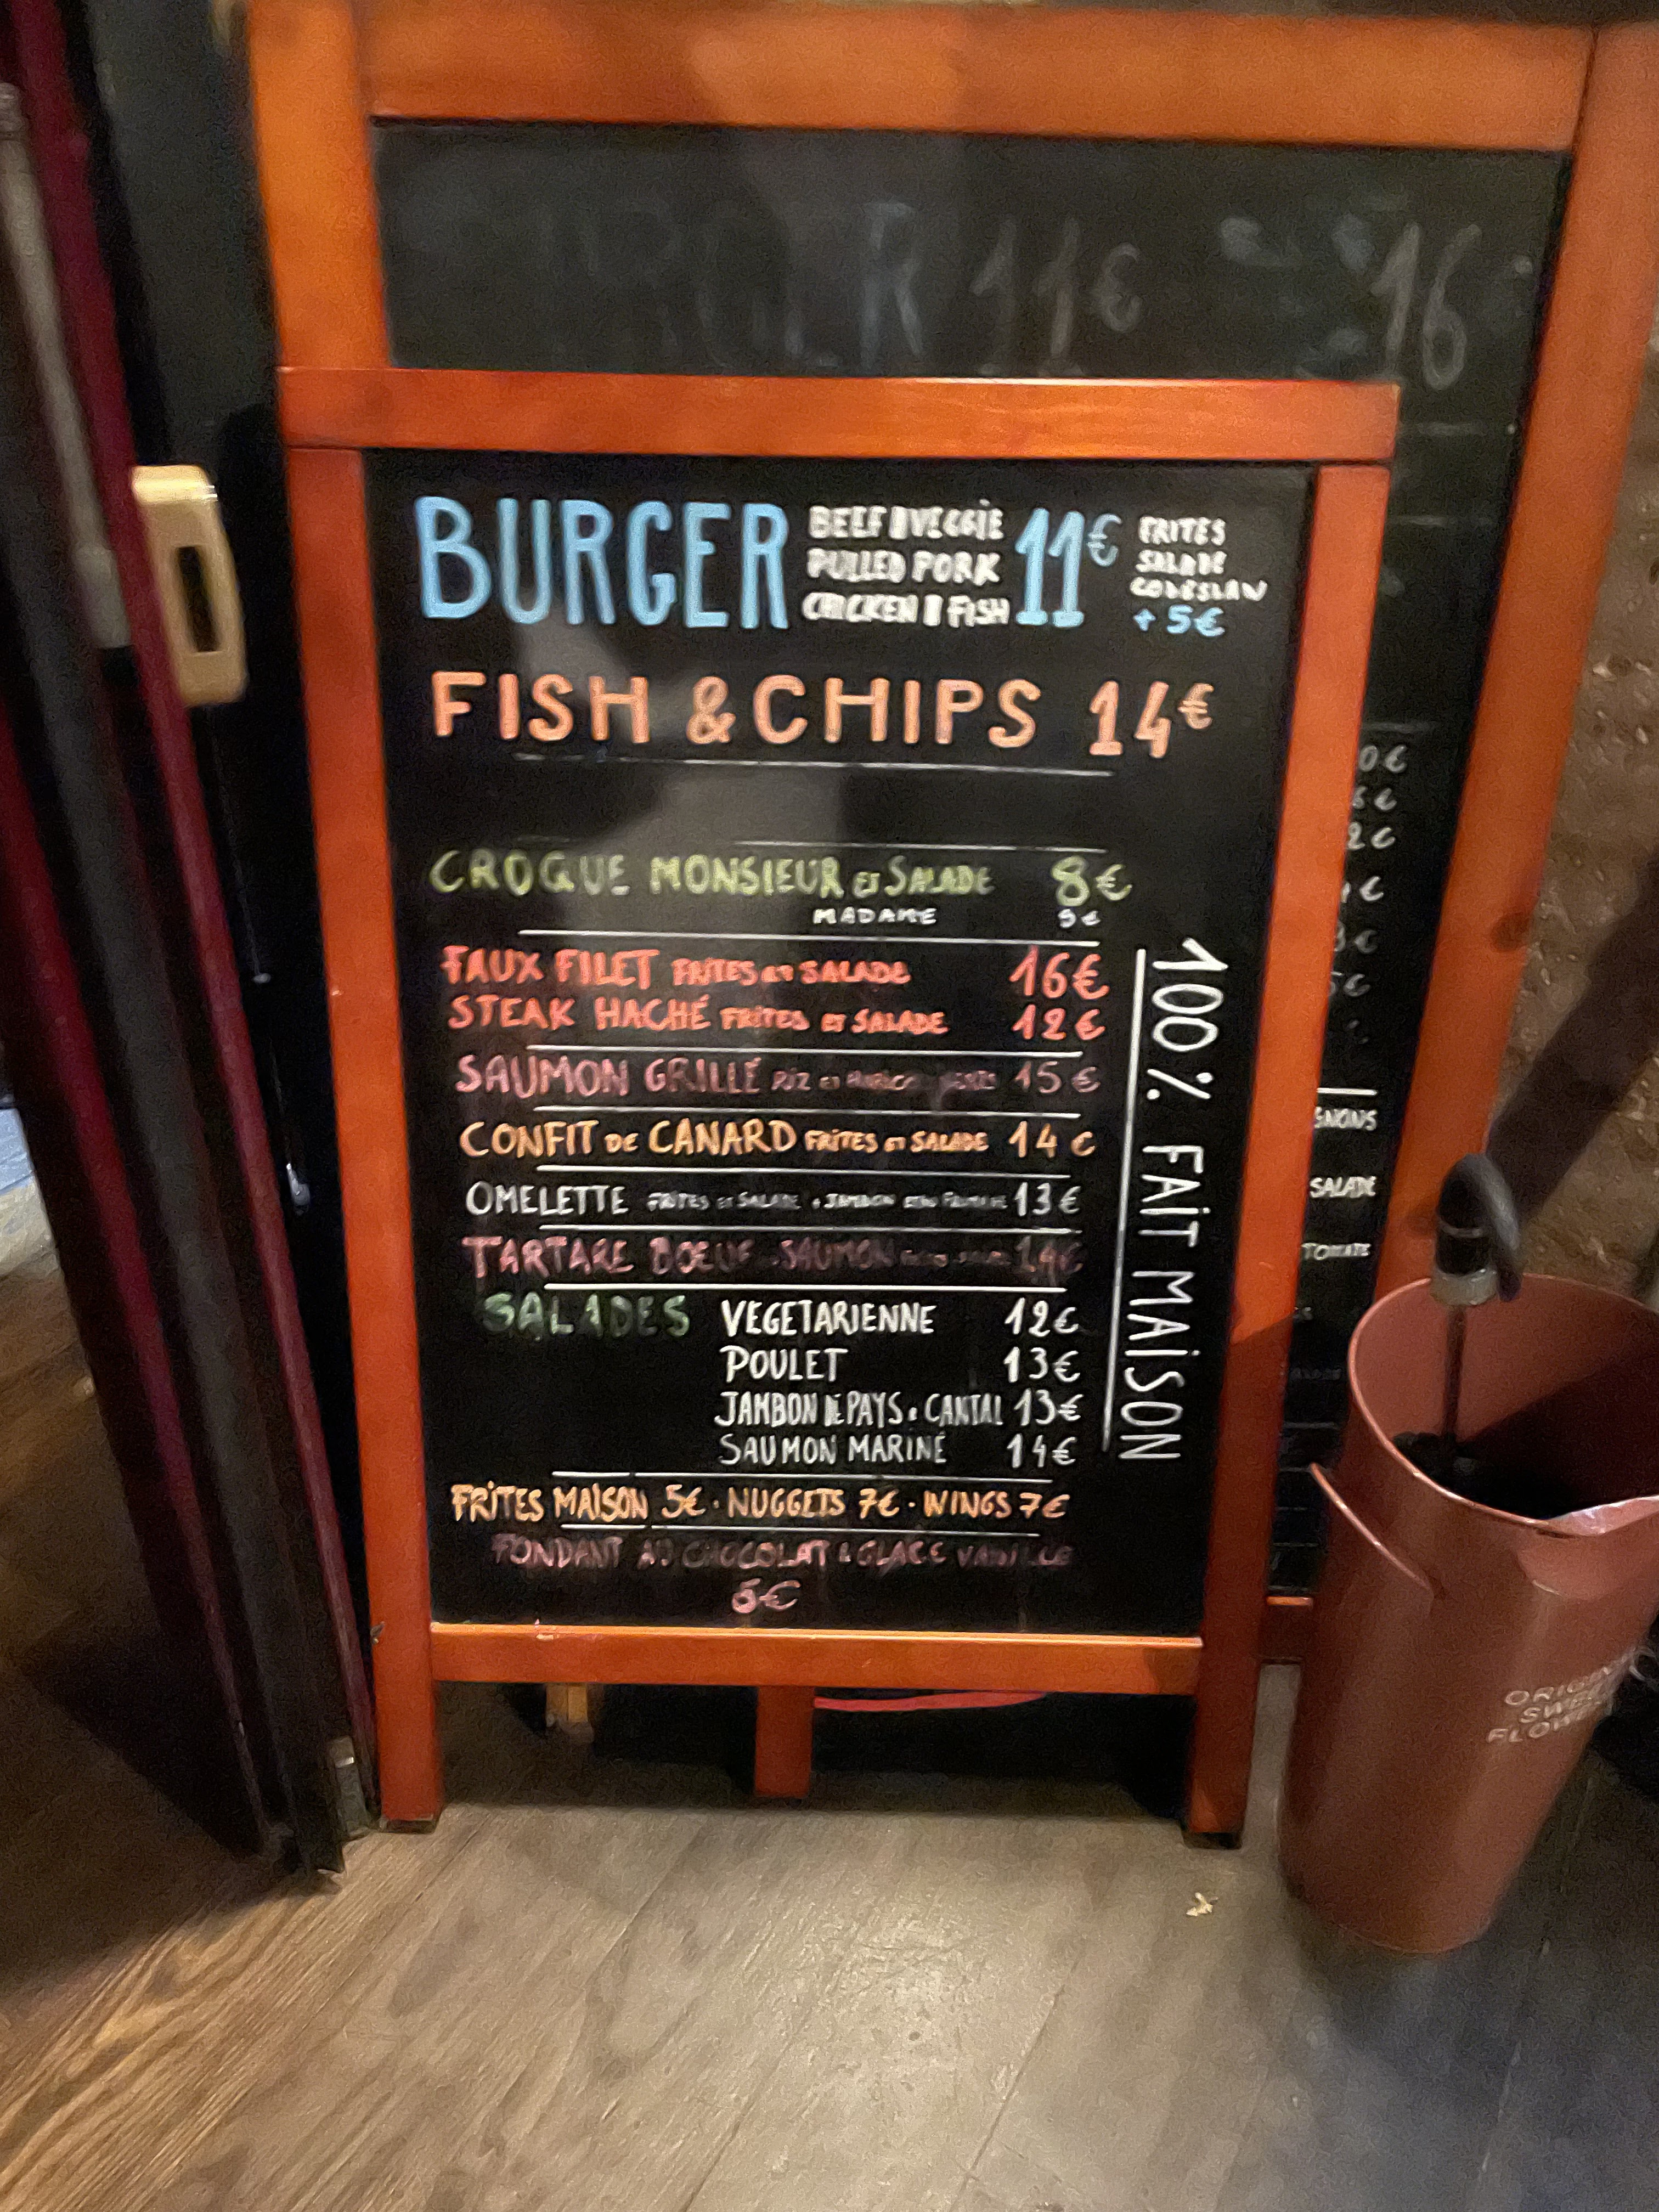 11€ 16
BURGER BEEF VEGGIE 11€ FRITES
PULLED PORK SALADE
CHICKEN FISH COLESLAW
+ 5€
FISH & CHIPS 14€
CROQUE MONSIEUR ET SALADE 8€
MADAME 9€
FAUX FILET FRITES ET SALADE 16€
STEAK HACHÉ FRITES ET SALADE 12€
SAUMON GRILLÉ RIZ ET 15€
CONFIT DE CANARD FRITES ET SALADE 14€
OMELETTE FRITES ET SALADE + JAMBON 13€
TARTARE BOEUF SAUMON 14€
SALADES VEGETARIENNE 12€
POULET 13€
JAMBON DE PAYS & CANTAL 13€
SAUMON MARINÉ 14€
FRITES MAISON 5€ · NUGGETS 7€ · WINGS 7€
FONDANT AU CHOCOLAT & GLACE VANILLE
100% FAIT MAISON
SALADE
TOMATE